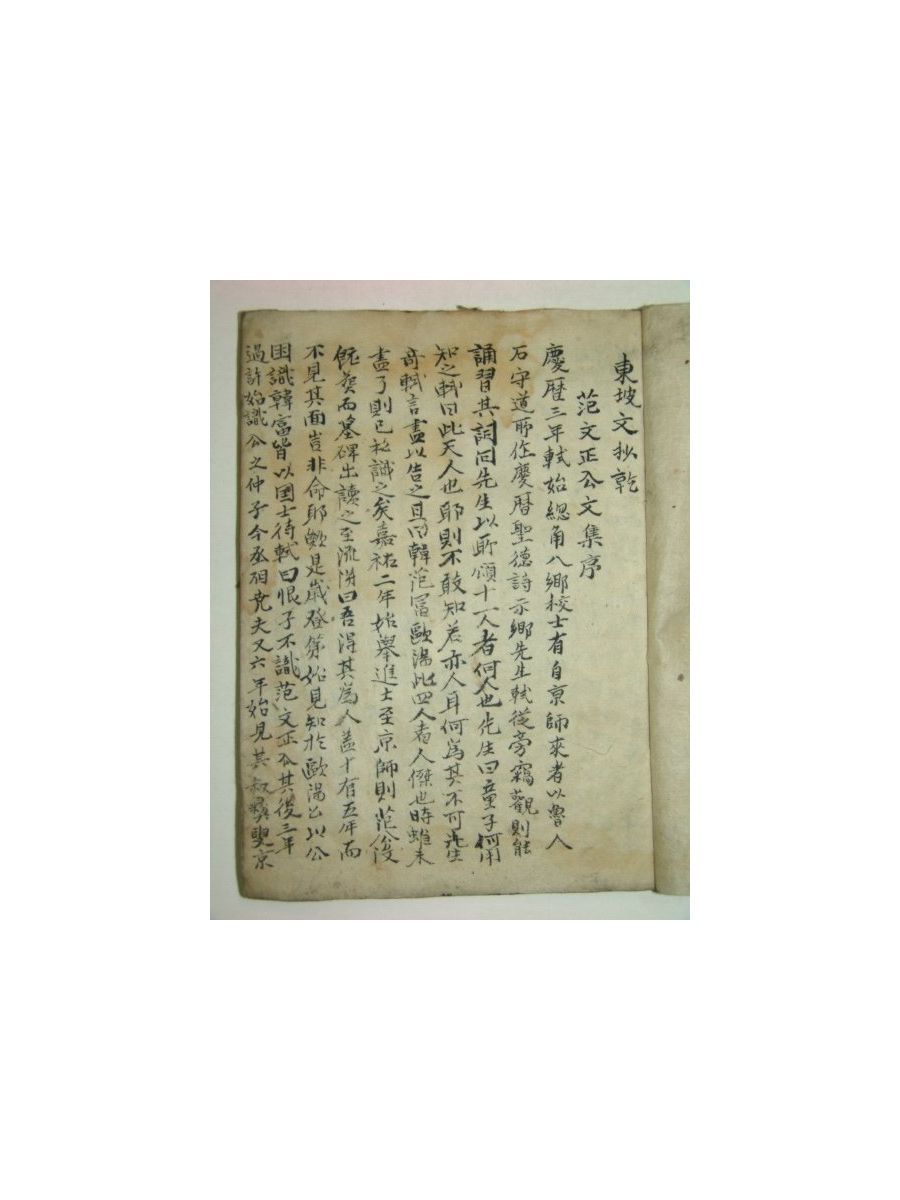 東坡文抄乾
范文正公文集序
慶曆三年軾始緫角入鄉校士有自京師來者以魯人
石守道所作慶曆聖德詩示鄉先生軾從旁竊觀則能
誦習其詞问先生以所頌十一人者何人也先生曰童子何用
知之軾曰此天人也耶則不敢知若亦人耳何爲其不可先生
奇軾言盡以告之且曰韓范富歐陽此四人者人傑也時雖未
盡了則已私識之矣嘉祐二年始舉進士至京師則范公沒
旣葬而墓碑出讀之至流涕曰吾得其爲人盖十有五年而
不見其面豈非命耶歟是歲登第始見知於歐陽公以公
因識韓富皆以国士待軾曰恨子不識范文正公其後三年
過許始識公之仲子今丞相尭夫又六年始見其叔彛叟京